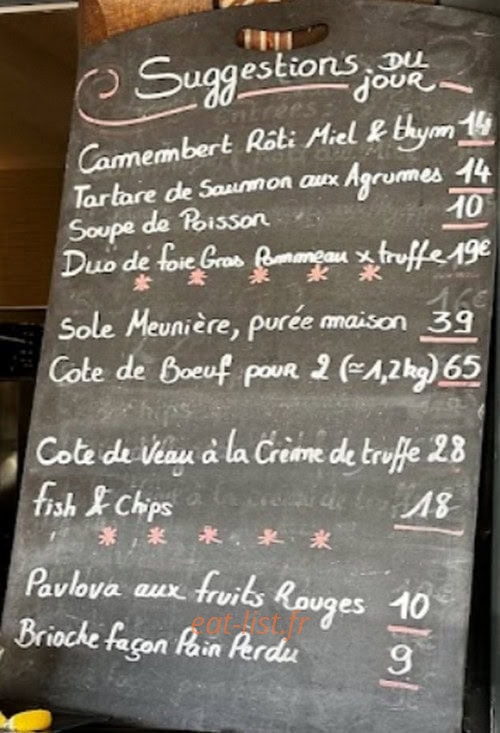 Suggestions DU JOUR
Camembert Rôti Miel & thym 14
Tartare de Saumon aux Agrumes 14
Soupe de Poisson 10
Duo de foie Gras Pommeau x truffe 19€
* * * * *
Sole Meunière, purée maison 39
Cote de Boeuf pour 2 (≃1,2kg) 65
Cote de Veau à la Crème de truffe 28
fish & Chips 18
* * * * *
Pavlova aux fruits Rouges 10
eat-list.fr
Brioche façon Pain Perdu 9